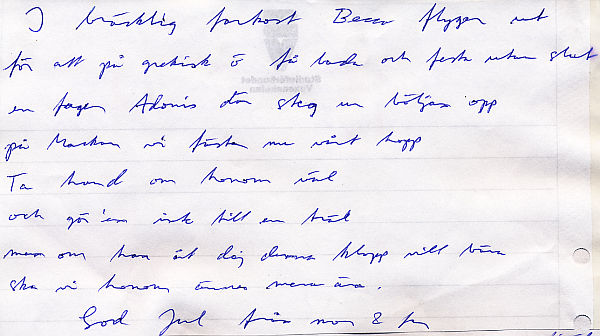 I bräcklig farkost Becca flyger ut
för att på grekisk ö få bada och festa utan slut
en fager Adonis där steg ur böljan opp
på Mackan vi fästa nu vårt hopp
Ta hand om honom väl
och gör 'en inte till en träl
men om han åt dig denna klapp vill bära
ska vi honom ännu mera ära.
God Jul från mor & far
Studieförbundet
Vuxenskolan